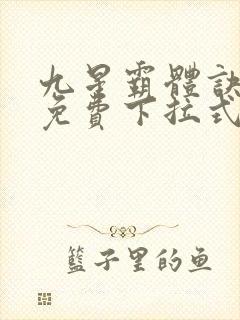 九星霸體訣
免費下拉式
籃子里的鱼